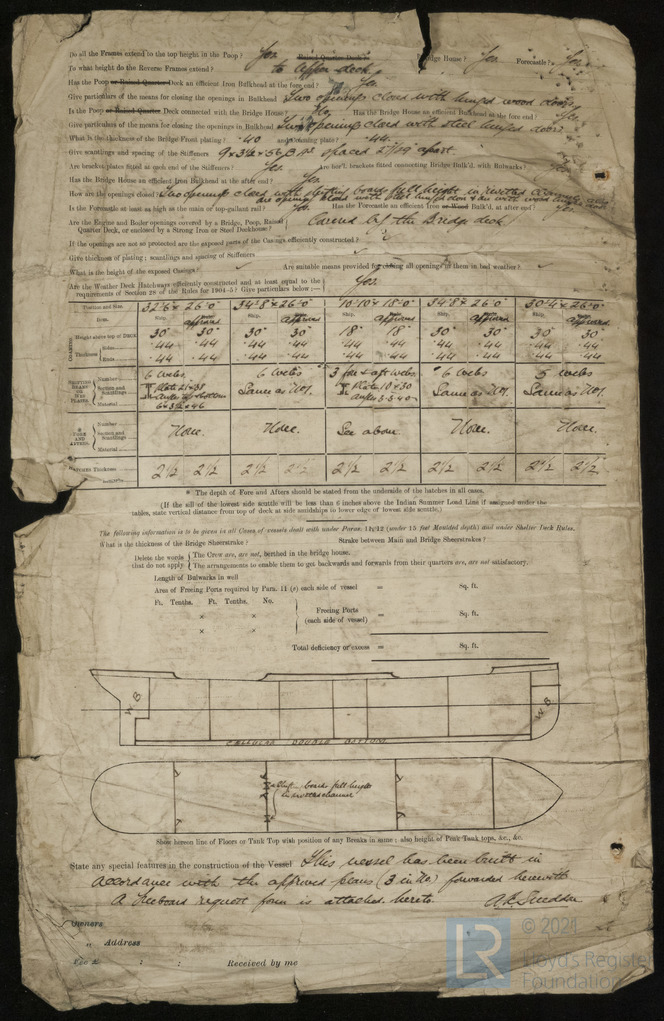 Do all the Frames extend to the top height in the Poop? Yes Raised Quarter Deck? Bridge House? Yes Forecastle? Yes
To what height do the Reverse Frames extend? to upper deck
Has the Poop or Raised Quarter Deck an efficient Iron Bulkhead at the fore end? Yes
Give particulars of the means for closing the openings in Bulkhead Two openings closed with hinged wood doors
Is the Poop or Raised Quarter Deck connected with the Bridge House? No Has the Bridge House an efficient Bulkhead at the fore end? Yes
Give particulars of the means for closing the openings in Bulkhead Two openings closed with steel hinged doors
What is the thickness of the Bridge Front plating? .40 and Coaming plate? .44
Give scantlings and spacing of the Stiffeners 9 x 3½ x 56 spaced apart
Are bracket plates fitted at each end of the Stiffeners? Yes Are hor'l. brackets fitted connecting Bridge Bulk'd. with Bulwarks? Yes
Has the Bridge House an efficient Iron Bulkhead at the after end? Yes
How are the openings closed? Two openings closed with shifting boards full height in riveted channels and
Is the Forecastle at least as high as the main or top-gallant rail? Yes Has the Forecastle an efficient Iron or Wood Bulk'd, at after end? Yes
Are the Engine and Boiler openings covered by a Bridge, Poop, Raised Covered by the Bridge deck
Quarter Deck, or enclosed by a Strong Iron or Steel Deckhouse?
If the openings are not so protected are the exposed parts of the Casings efficiently constructed?
Give thickness of plating; scantlings and spacing of Stiffeners
What is the height of the exposed Casings? Are suitable means provided for closing all openings in them in bad weather?
Are the Weather Deck Hatchways efficiently constructed and at least equal to the Yes
requirements of Section 28 of the Rules for 1904-5? Give particulars below :—
Position and Size. 32'6 x 26'0 34'8 x 26'0 10'10 x 18'0 34'8 x 26'0 30'4 x 26'0
Item. Ship. approved Ship. approved Ship. approved Ship. approved Ship. approved
COAMING Height above top of Deck 30" 30" 30" 30" 18" 18" 30" 30" 30" 30"
Thickness Sides .44 .44 .44 .44 .44 .44 .44 .44 .44 .44
Ends .44 .44 .44 .44 .44 .44 .44 .44 .44 .44
SHIFTING BEAMS OR WEB PLATES. Number 6 webs 6 webs 3 fore & aft webs 6 webs 5 webs
Section and Scantlings Same as No1. Plates 10 x 30 Same as No1. Same as No1.
Material
* FORE AND AFTERS. Number
Section and Scantlings None. None. See above None. None.
Material
HATCHES Thickness 2½ 2½ 2½ 2½ 2½ 2½ 2½ 2½ 2½ 2½
* The depth of Fore and Afters should be stated from the underside of the hatches in all cases.
(If the sill of the lowest side scuttle will be less than 6 inches above the Indian Summer Load Line if assigned under the
tables, state vertical distance from top of deck at side amidships to lower edge of lowest side scuttle.)
The following information is to be given in all Cases of vessels dealt with under Paras. 11, 12 (under 15 feet Moulded depth) and under Shelter Deck Rules.
What is the thickness of the Bridge Sheerstrake? Strake between Main and Bridge Sheerstrakes?
Delete the words { The Crew are, are not, berthed in the bridge house.
that do not apply { The arrangements to enable them to get backwards and forwards from their quarters are, are not satisfactory.
Length of Bulwarks in well
Area of Freeing Ports required by Para. 11 (e) each side of vessel = Sq. ft.
Ft. Tenths. Ft. Tenths. No.
× × Freeing Ports
(each side of vessel) = Sq. ft.
× ×
Total deficiency or excess = Sq. ft.
W B
W B
CELLULAR DOUBLE BOTTOM
Shift. boards full height
in riveted channels
Show hereon line of Floors or Tank Top wish position of any Breaks in same; also height of Peak Tank tops, &c., &c.
State any special features in the construction of the Vessel This vessel has been built in
accordance with the approved plans (3 in No) forwarded herewith
A Freeboard request form is attached hereto.
Owners
„ Address
Fee £ : : Received by me
LR © 2021
Lloyd's Register
Foundation